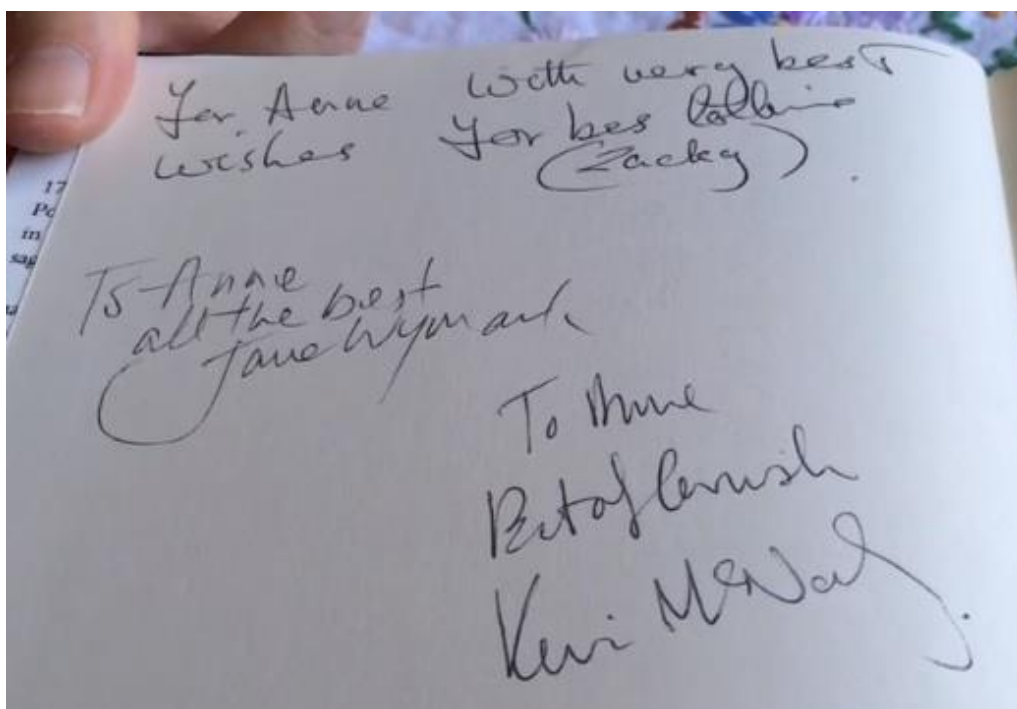 For Anne With very best
wishes Forbes Collins
(Zacky)
To Anne
all the best
Jane Wymark
To Anne
Best of Cornish
Kevin McNally
17
Po
in
sag